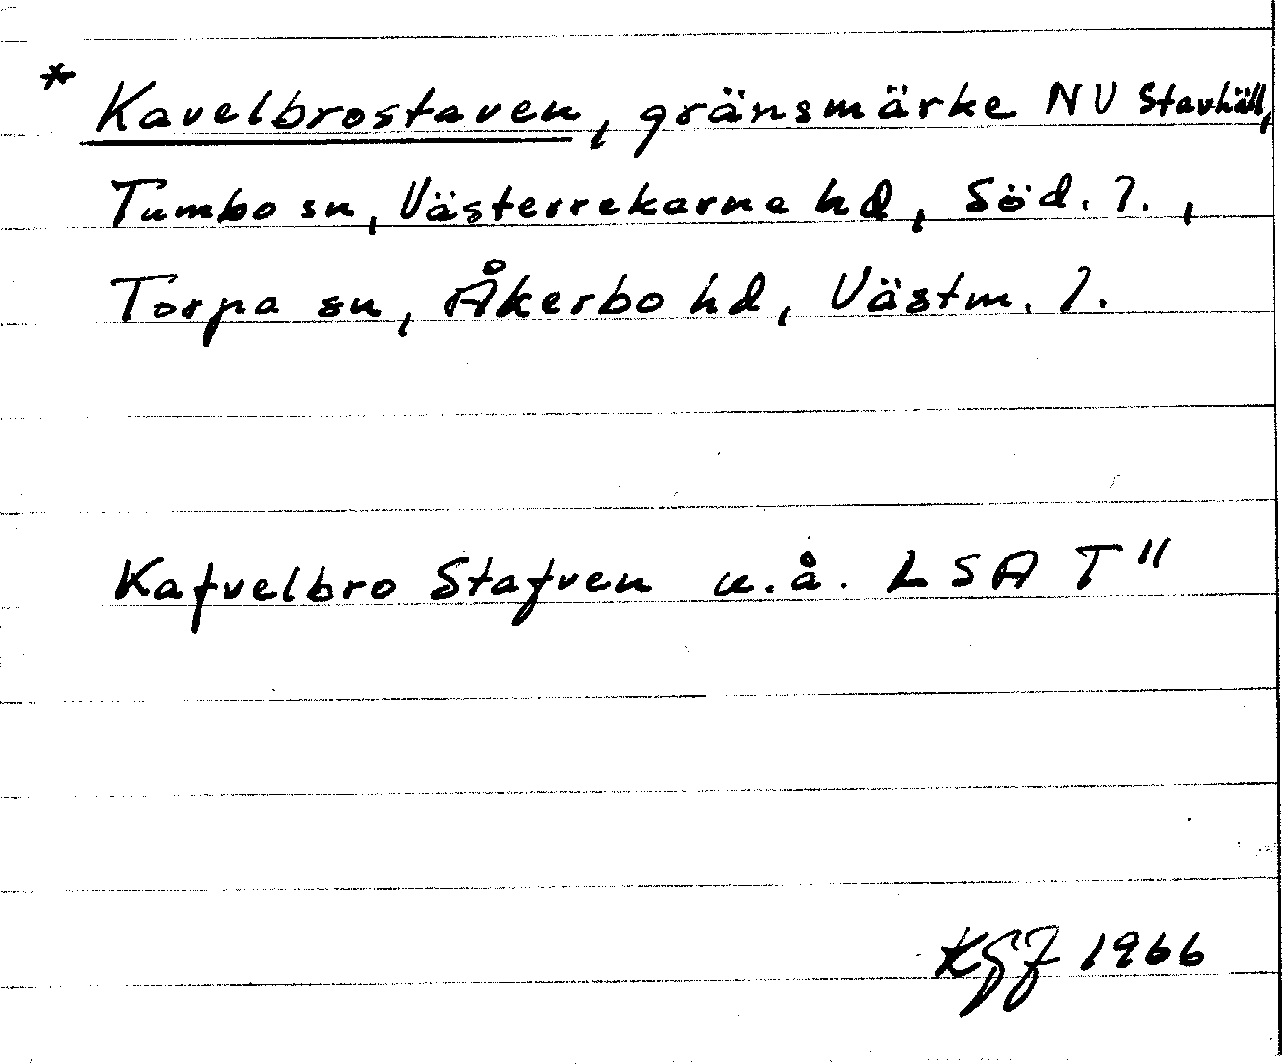 * Kavelbrostaven, gränsmärke NV Stavhäll,
Tumbo sn, Västerrekarne hd, Söd. l.,
Torpa sn, Åkerbo hd, Västm. l.
Kafvelbro Stafven u.å. LSA T"
KGJ 1966